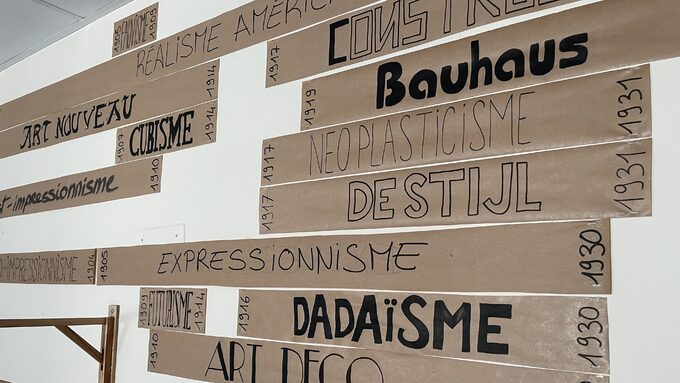 1905 FAUVISME 1909
RÉALISME AMÉRIC
1917 CONSTRUC
ART NOUVEAU 1914
1919 Bauhaus
1907 CUBISME 1914
1917 NEOPLASTICISME 1931
t-impressionnisme 1910
1917 DE STIJL 1931
O-IMPRESSIONNISME 1904
1905 EXPRESSIONNISME 1930
1909 FUTURISME 1914
1916 DADAÏSME 1930
1910 ART DECO